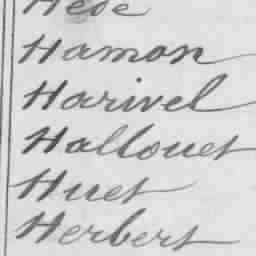 Hamon
Harivel
Hallouet
Huet
Herbert